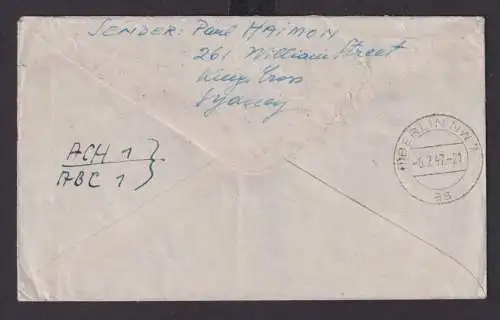 SENDER: Paul HAIMON
261 William Street
Kings Cross
Sydney
ACH 1
ABC 1
BERLIN NW 7
-6.2.47.-21
as